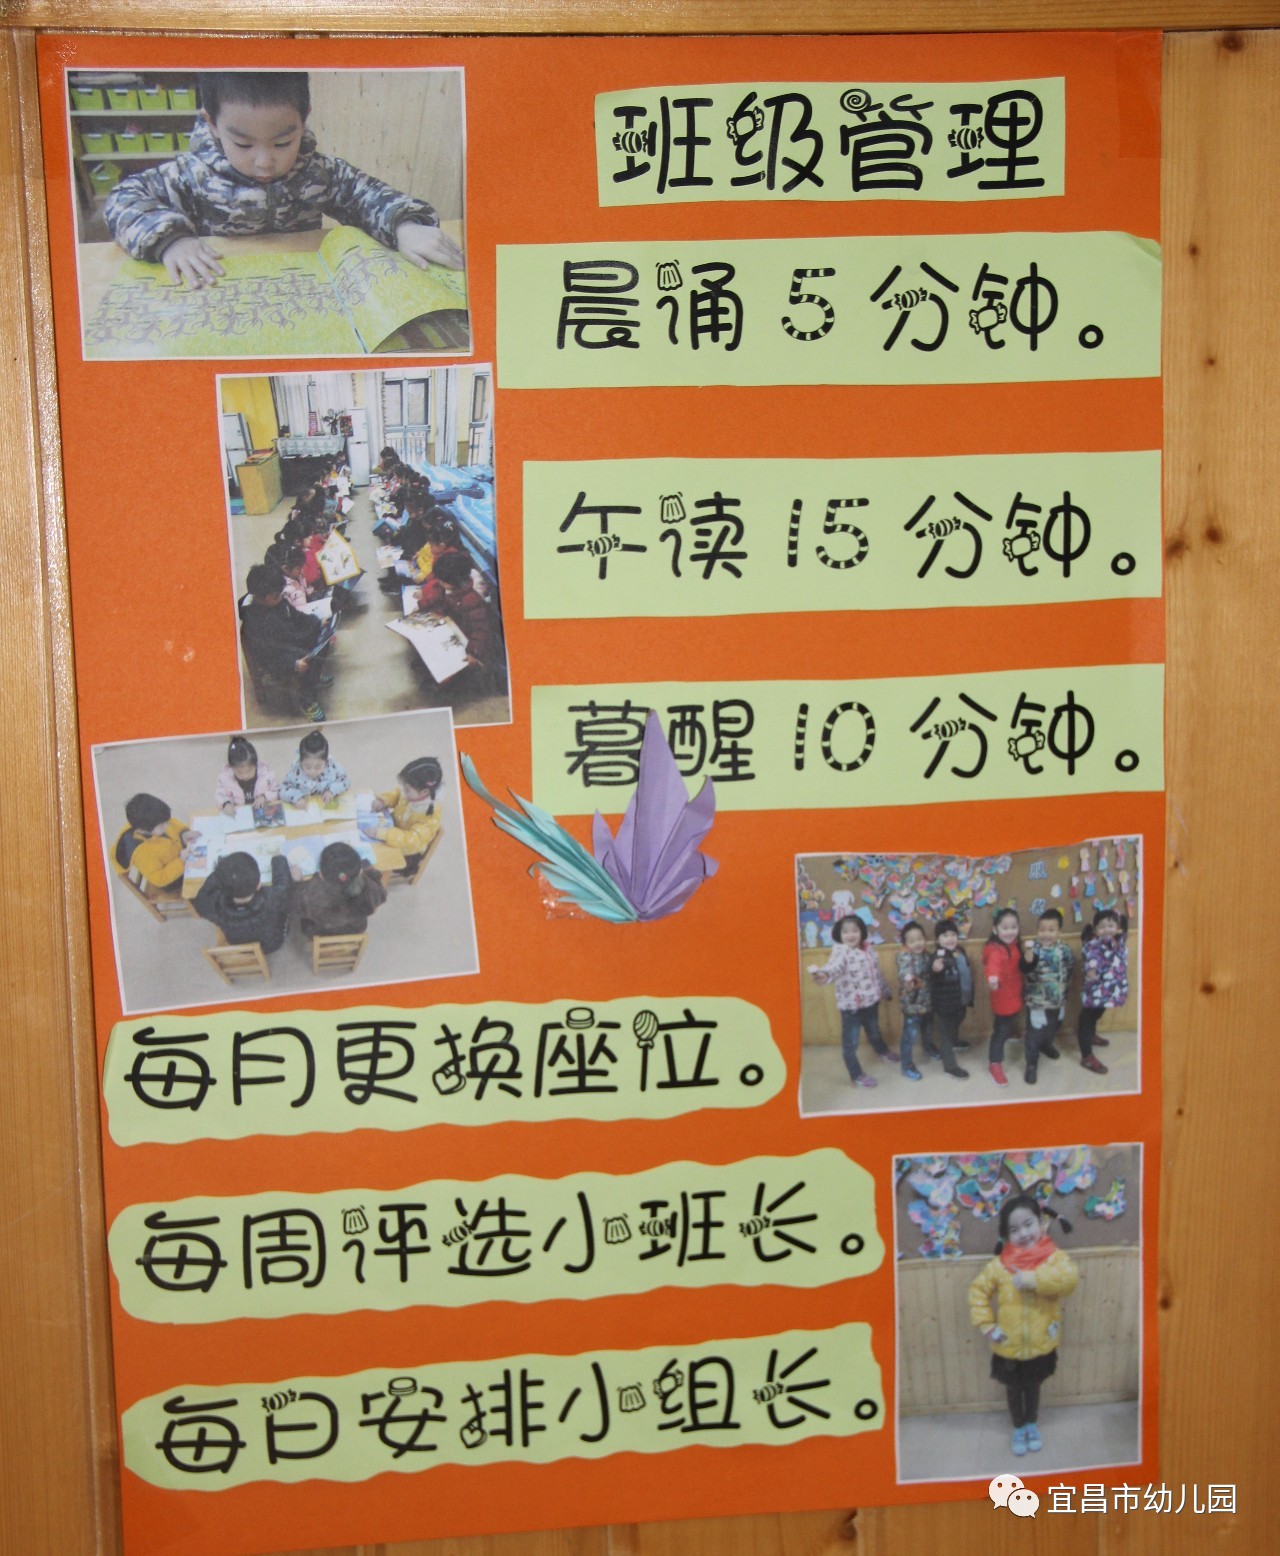 班级管理
晨诵 5 分钟。
午读 15 分钟。
暮醒 10 分钟。
每月更换座位。
每周评选小班长。
每日安排小组长。
宜昌市幼儿园